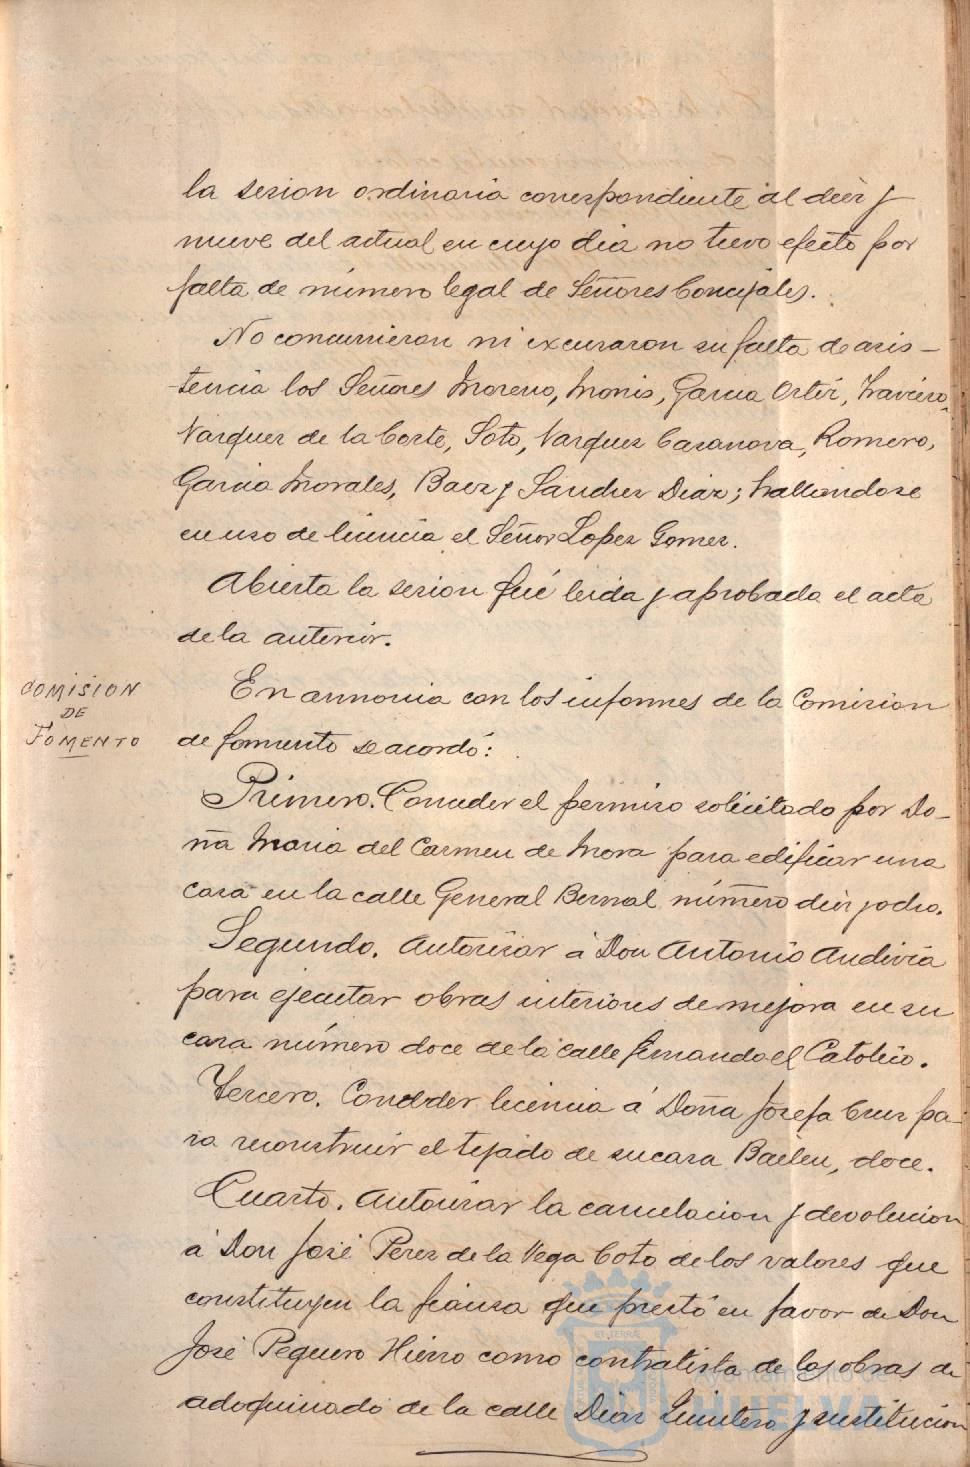 la sesion ordinaria correspondiente al diez y
nueve del actual en cuyo dia no tuvo efecto por
falta de número legal de Señores Concejales.
No concurrieron ni excusaron su falta de asis-
tencia los Señores Moreno, Monis, Garcia Ortiz, Traviesa,
Vazquez de la Corte, Soto, Vazquez Casanova, Romero,
Garcia Morales, Baez y Sanchez Diaz; hallandose
en uso de licencia el Señor Lopez Gomez.
Abierta la sesion fué leida y aprobada el acta
de la anterior.
COMISION
DE
FOMENTO
En armonia con los informes de la Comision
de fomento se acordó:
Primero. Conceder el permiso solicitado por Do-
ña Maria del Carmen de Mora para edificar una
casa en la calle General Bernal número diez y ocho.
Segundo. Autorizar á Don Antonio Andivia
para ejecutar obras interiores de mejora en su
casa número doce de la calle Fernando el Catolico.
Tercero. Conceder licencia á Doña Josefa Cruz pa-
ra reconstruir el tejado de su casa Bailen, doce.
Cuarto. Autorizar la cancelacion y devolucion
á Don José Perez de la Vega Coto de los valores que
constituyen la fianza que prestó en favor de Don
José Peguero Hierro como contratista de las obras de
adoquinado de la calle Diaz Quintero y sustitucion
Ayuntamiento de
HUELVA